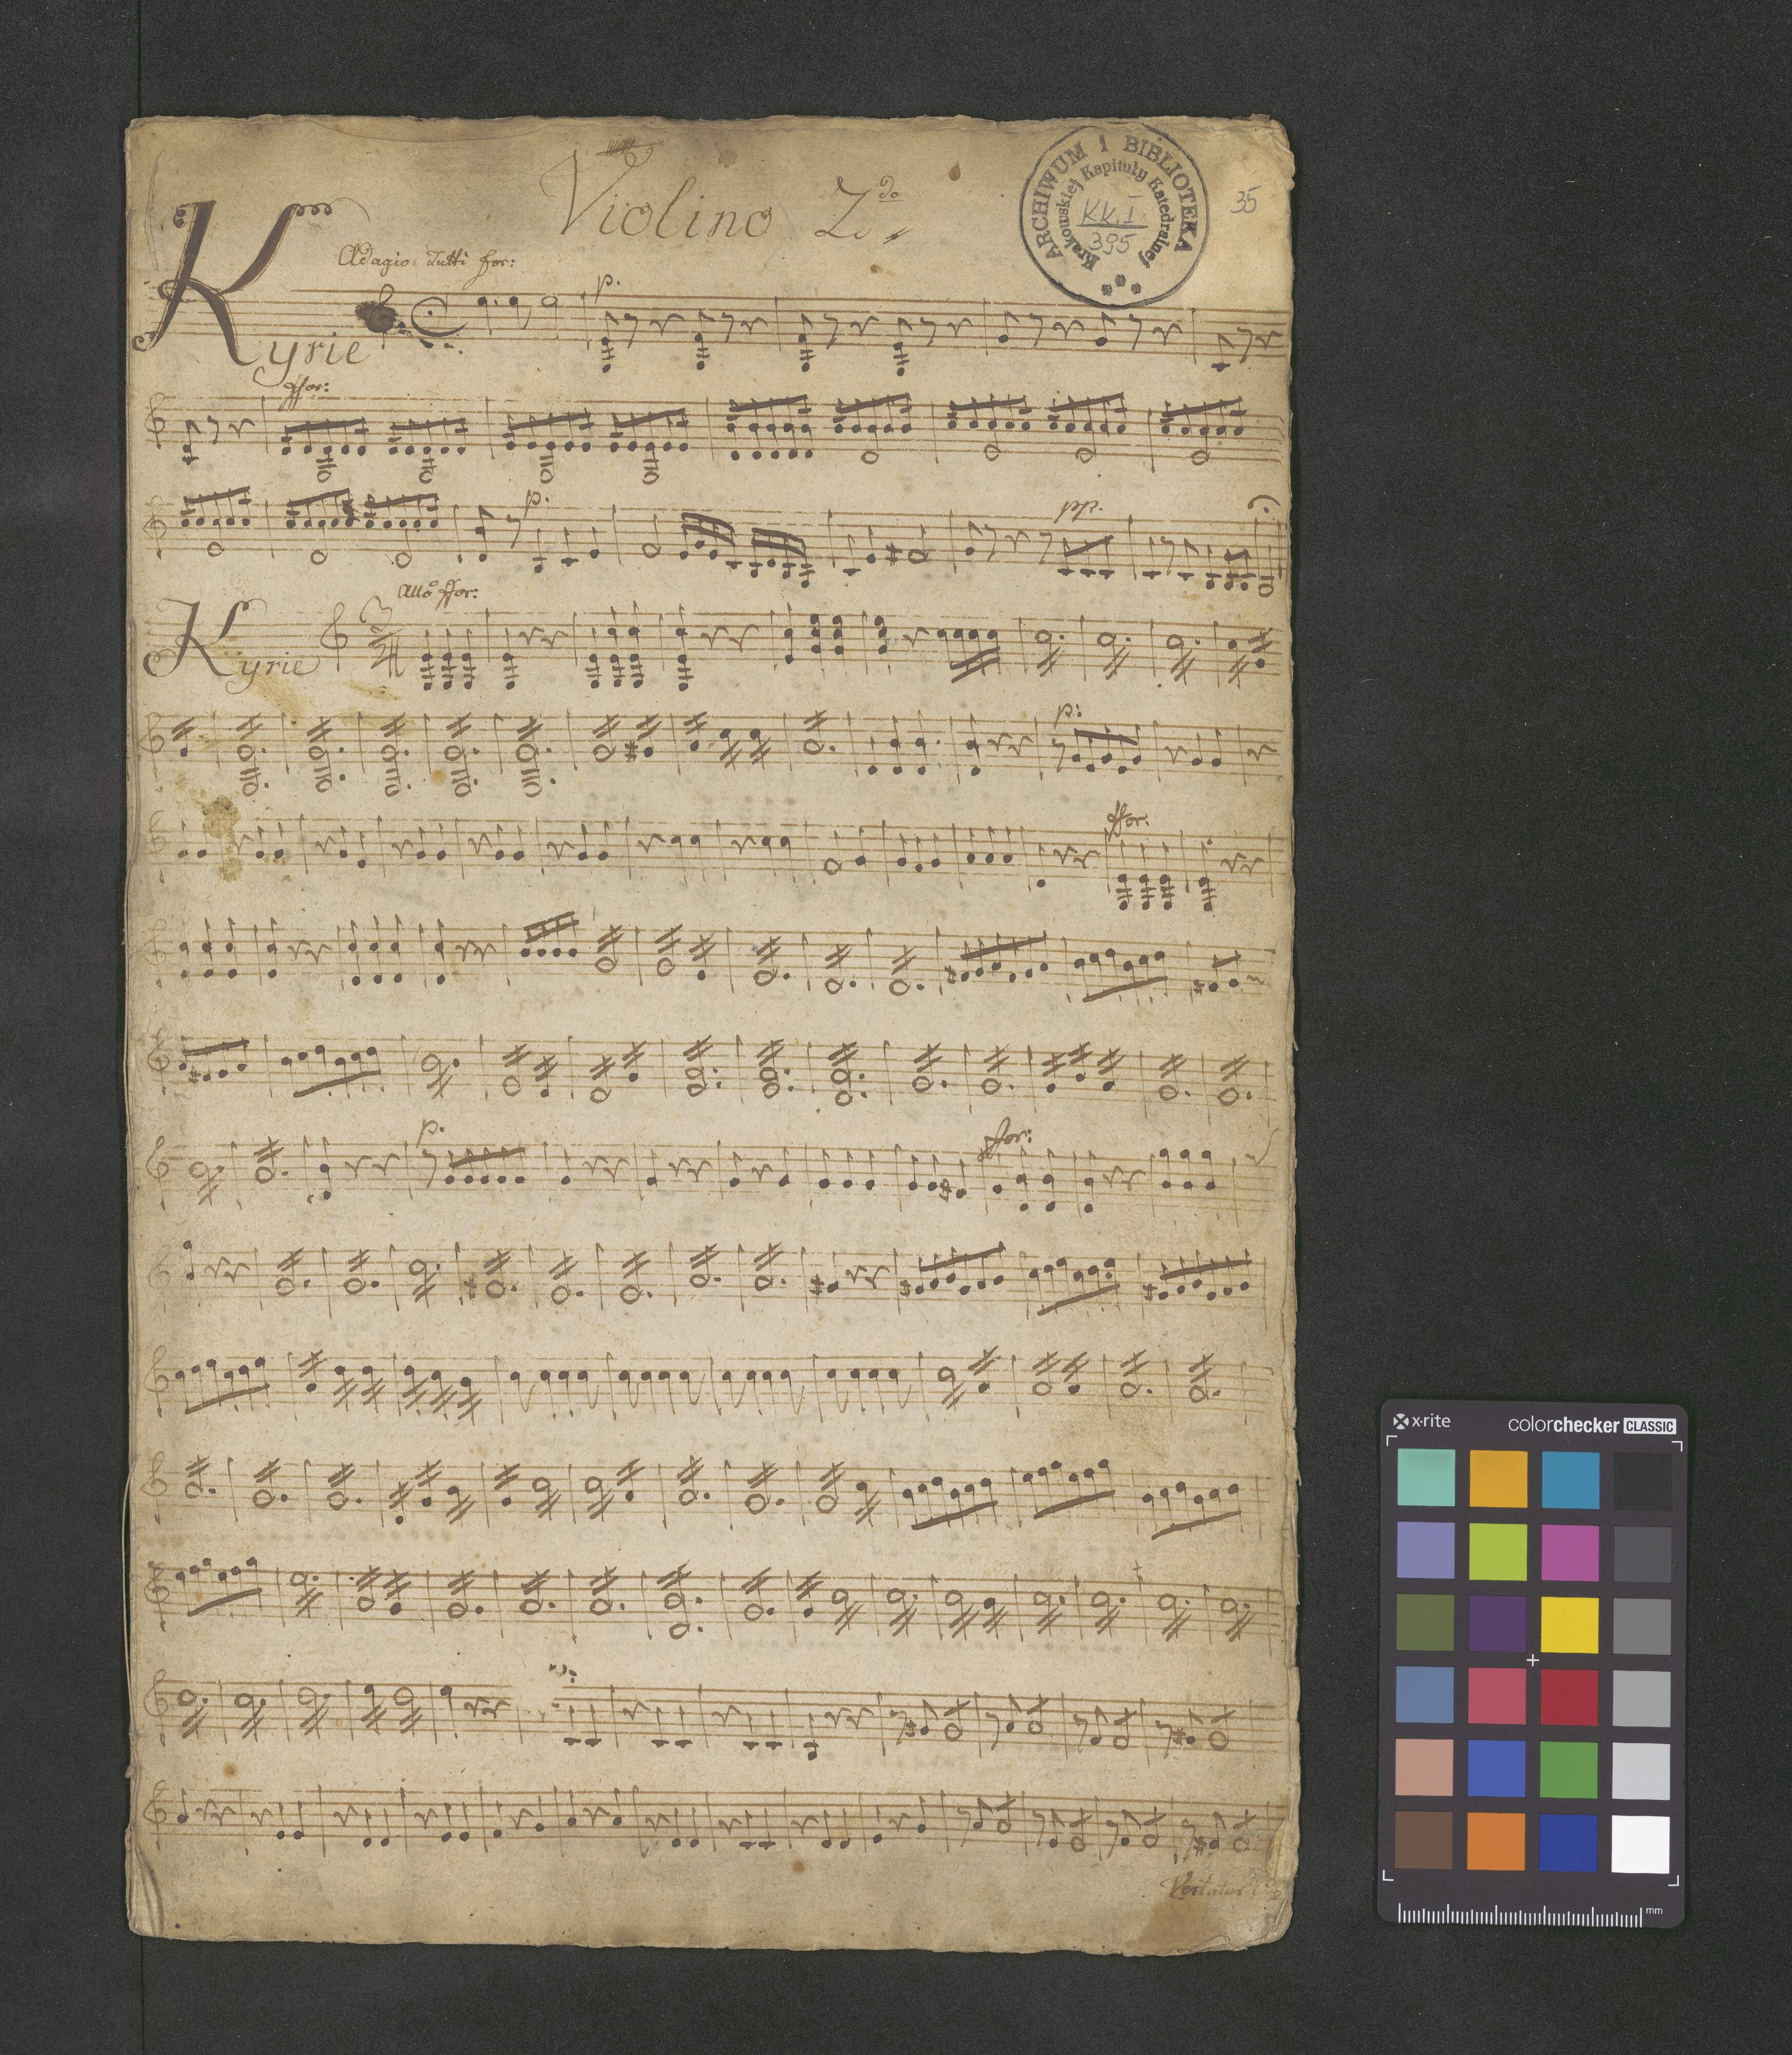 Violino 2do
ARCHIWUM I BIBLIOTEKA
Krakowskiej Kapituły Katedralnej
KK. I
395
35
Adagio Tutti for:
Kyrie
p.
ffor:
p.
pp.
Allo ffor:
Kyrie
p:
ffor:
p.
ffor:
Vertatur
x·rite
colorchecker CLASSIC
mm